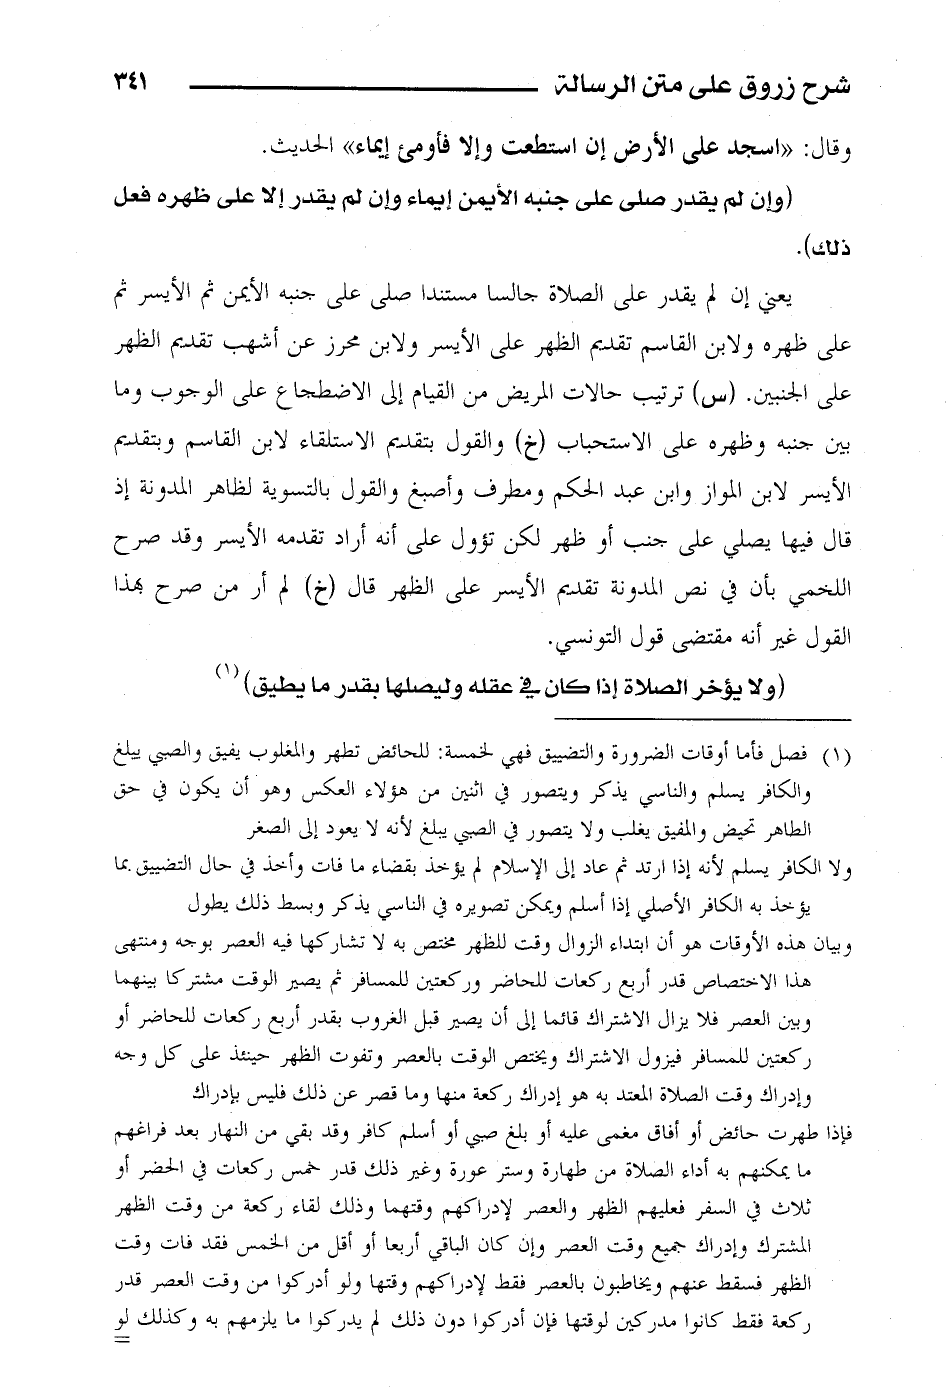 شرح زروق على متن الرسالة ٣٤١
وقال: «اسجد على الأرض إن استطعت وإلا فأومئ إيماء» الحديث.
(وإن لم يقدر صلى على جنبه الأيمن إيماء وإن لم يقدر إلا على ظهره فعل
ذلك).
يعني إن لم يقدر على الصلاة جالسا مستندا صلى على جنبه الأيمن ثم الأيسر ثم
على ظهره ولابن القاسم تقديم الظهر على الأيسر ولابن محرز عن أشهب تقديم الظهر
على الجنبين. (س) ترتيب حالات المريض من القيام إلى الاضطجاع على الوجوب وما
بين جنبه وظهره على الاستحباب (خ) والقول بتقديم الاستلقاء لابن القاسم وبتقديم
الأيسر لابن المواز وابن عبد الحكم ومطرف وأصبغ والقول بالتسوية لظاهر المدونة إذ
قال فيها يصلي على جنب أو ظهر لكن تؤول على أنه أراد تقدمه الأيسر وقد صرح
اللخمي بأن في نص المدونة تقديم الأيسر على الظهر قال (خ) لم أر من صرح بهذا
القول غير أنه مقتضى قول التونسي.
(ولا يؤخر الصلاة إذا كان في عقله وليصلها بقدر ما يطيق)(١)
(١) فصل فأما أوقات الضرورة والتضييق فهي لخمسة: للحائض تطهر والمغلوب يفيق والصبي يبلغ
والكافر يسلم والناسي يذكر ويتصور في اثنين من هؤلاء العكس وهو أن يكون في حق
الطاهر تحيض والمفيق يغلب ولا يتصور في الصبي يبلغ لأنه لا يعود إلى الصغر
ولا الكافر يسلم لأنه إذا ارتد ثم عاد إلى الإسلام لم يؤخذ بقضاء ما فات وأخذ في حال التضييق بما
يؤخذ به الكافر الأصلي إذا أسلم ويمكن تصويره في الناسي يذكر وبسط ذلك يطول
وبيان هذه الأوقات هو أن ابتداء الزوال وقت للظهر مختص به لا تشاركها فيه العصر بوجه ومنتهى
هذا الاختصاص قدر أربع ركعات للحاضر وركعتين للمسافر ثم يصير الوقت مشتركا بينهما
وبين العصر فلا يزال الاشتراك قائما إلى أن يصير قبل الغروب بقدر أربع ركعات للحاضر أو
ركعتين للمسافر فيزول الاشتراك ويختص الوقت بالعصر وتفوت الظهر حينئذ على كل وجه
وإدراك وقت الصلاة المعتد به هو إدراك ركعة منها وما قصر عن ذلك فليس بإدراك
فإذا طهرت حائض أو أفاق مغمى عليه أو بلغ صبي أو أسلم كافر وقد بقي من النهار بعد فراغهم
ما يمكنهم به أداء الصلاة من طهارة وستر عورة وغير ذلك قدر خمس ركعات في الحضر أو
ثلاث في السفر فعليهم الظهر والعصر لإدراكهم وقتهما وذلك لقاء ركعة من وقت الظهر
المشترك وإدراك جميع وقت العصر وإن كان الباقي أربعا أو أقل من الخمس فقد فات وقت
الظهر فسقط عنهم ويخاطبون بالعصر فقط لإدراكهم وقتها ولو أدركوا من وقت العصر قدر
ركعة فقط كانوا مدركين لوقتها فإن أدركوا دون ذلك لم يدركوا ما يلزمهم به وكذلك لو
=